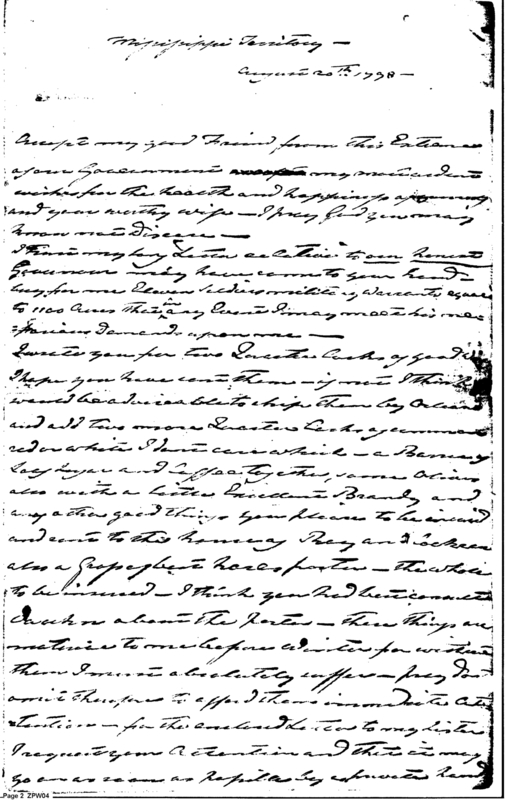 Mississippi Territory —
August 20th. 1798 —
Accept my good Friend from this Extreme
of our Government my most ardent
wishes for the health and happiness
and your worthy wife — I pray God you may
know not Disease —
my Letter relative to our honest
Governor may have come to your hand —
buy for me Eleven Soldiers military Warrants equal
to 1100 Acres that in any Event I may meet his
demands upon me —
I wrote you for two Quarter Casks of good
I hope you have sent them — if not I think
would be adviseable to ship them by Orleans
and add two more Quarter Casks of common
red or white I dont care which — a Barrel of
Loaf Sugar and Coffee together, some Olives
also with a little Excellent Brandy and
any other good things you please to be insured
and sent to this home way
also a Groce of best porter — the whole
to be insured — I think you had best consult
about the Porter — these things are
material to me before Winter for without
them I must absolutely suffer — pray dont
omit therefore to afford them immediate At-
tention — for the enclosed Letter to my Sister
I request your Attention and that it may
go on as soon as possible by a private hand
Page 2 ZPW04